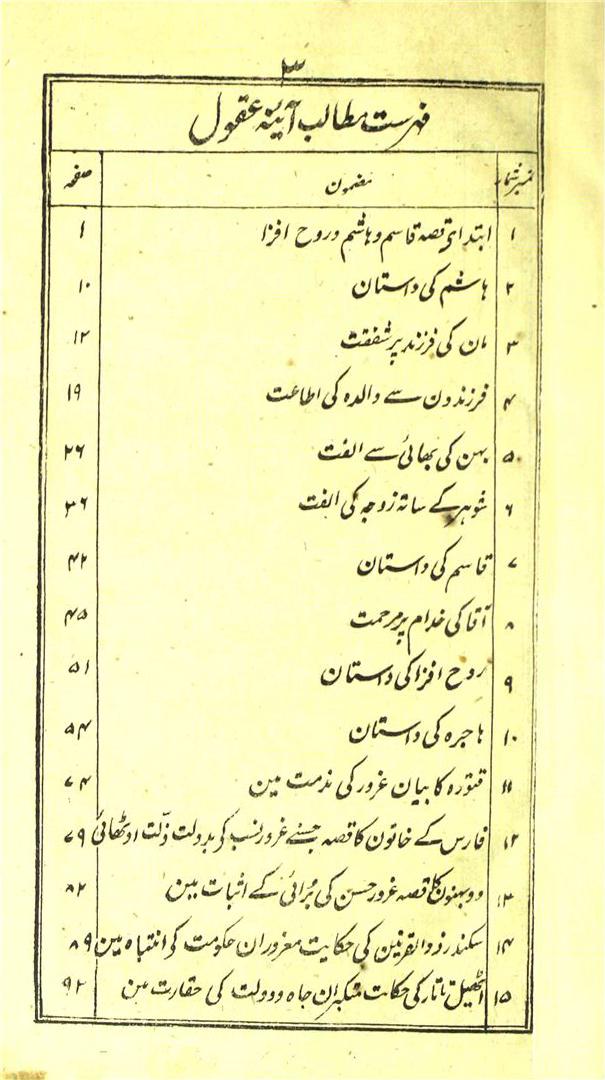 ۳
فہرست مطالب آئینہ عقول
نمبر شمار مضمون صفحہ
۱ ابتدای قصہ قاسم و ہاشم و روح افزا ۱
۲ ہاشم کی داستان ۱۰
۳ مان کی فرزند پر شفقت ۱۲
۴ فرزندون سے والدہ کی اطاعت ۱۹
۵ بہن کی بھائی سے الفت ۲۶
۶ شوہر کے ساتہ زوجہ کی الفت ۳۶
۷ قاسم کی داستان ۴۲
۸ آقا کی خدام پر مرحمت ۴۵
۹ روح افزا کی داستان ۵۱
۱۰ ہاجرہ کی داستان ۵۴
۱۱ قنتورہ کا بیان غرور کی مذمت مین ۷۴
۱۲ فارس کے خاتون کا قصہ جسنے غرور نسب کو بدولت ذلّت اوٹھائی ۷۹
۱۳ دو بہنون کا قصہ غرور حسن کی بُرائی کے اثبات مین ۸۲
۱۴ سکندر ذوالقرنین کی حکایت مغروران حکومت کو انتباہ مین ۸۹
۱۵ تاتار کی حکایت متکبران جاہ و دولت کی حقارت مین ۹۲